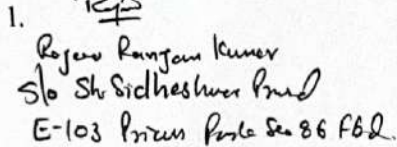 1.
Rajeev Ranjan Kumar
S/o Sh. Sidheshwar Prasad
E-103 Park Sec 86 FBD.